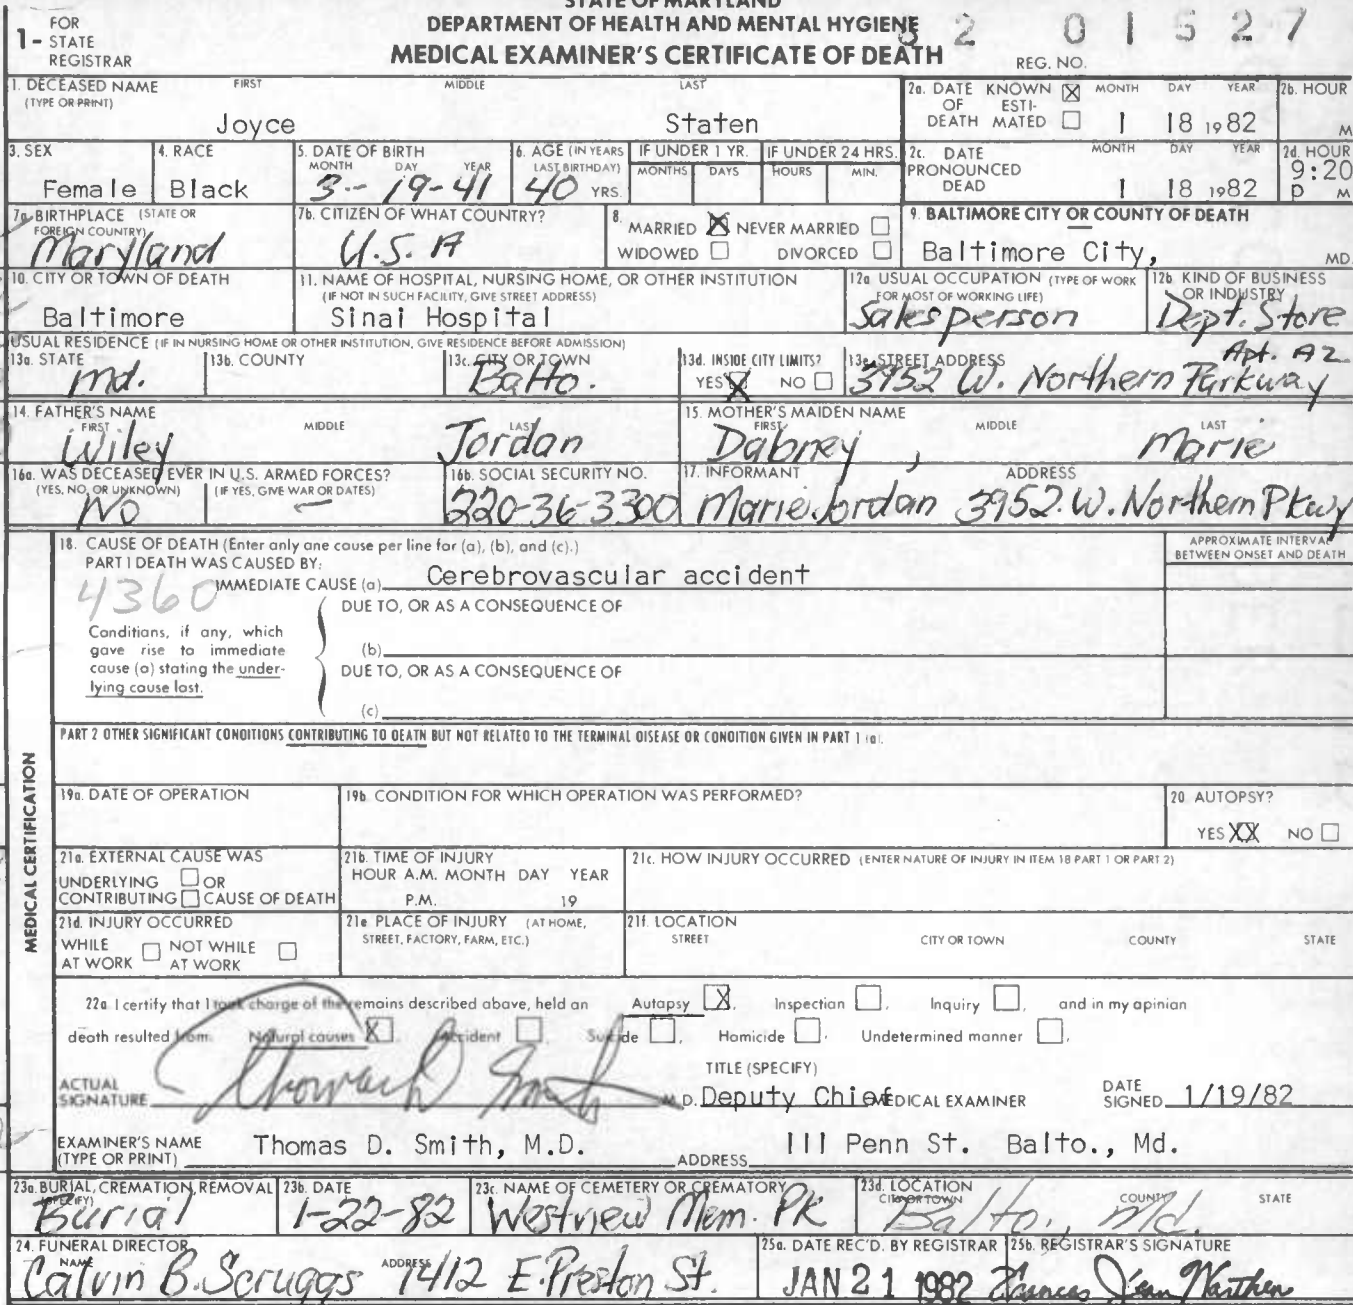 STATE OF MARYLAND
DEPARTMENT OF HEALTH AND MENTAL HYGIENE
MEDICAL EXAMINER'S CERTIFICATE OF DEATH
1- FOR STATE REGISTRAR
82 01527
REG. NO.
1. DECEASED NAME (TYPE OR PRINT) FIRST MIDDLE LAST
Joyce Staten
2a. DATE OF DEATH KNOWN ☒ ESTIMATED ☐ MONTH DAY YEAR
1 18 1982
2b. HOUR M
3. SEX
Female
4. RACE
Black
5. DATE OF BIRTH MONTH DAY YEAR
3-19-41
6. AGE (IN YEARS LAST BIRTHDAY)
40 YRS.
IF UNDER 1 YR. MONTHS DAYS
IF UNDER 24 HRS. HOURS MIN.
2c. DATE PRONOUNCED DEAD MONTH DAY YEAR
1 18 1982
2d. HOUR
9:20 p M
7a. BIRTHPLACE (STATE OR FOREIGN COUNTRY)
Maryland
7b. CITIZEN OF WHAT COUNTRY?
U.S.A
8. MARRIED ☒ NEVER MARRIED ☐
WIDOWED ☐ DIVORCED ☐
9. BALTIMORE CITY OR COUNTY OF DEATH
Baltimore City, MD.
10. CITY OR TOWN OF DEATH
Baltimore
11. NAME OF HOSPITAL, NURSING HOME, OR OTHER INSTITUTION
(IF NOT IN SUCH FACILITY, GIVE STREET ADDRESS)
Sinai Hospital
12a. USUAL OCCUPATION (TYPE OF WORK FOR MOST OF WORKING LIFE)
Salesperson
12b KIND OF BUSINESS OR INDUSTRY
Dept. Store
USUAL RESIDENCE (IF IN NURSING HOME OR OTHER INSTITUTION, GIVE RESIDENCE BEFORE ADMISSION)
13a. STATE
Md.
13b. COUNTY
13c. CITY OR TOWN
Balto.
13d. INSIDE CITY LIMITS?
YES ☒ NO ☐
13e. STREET ADDRESS
Apt. A2
3952 W. Northern Parkway
14. FATHER'S NAME FIRST MIDDLE LAST
Wiley Jordan
15. MOTHER'S MAIDEN NAME FIRST MIDDLE LAST
Dabney, Marie
16a. WAS DECEASED EVER IN U.S. ARMED FORCES?
(YES, NO, OR UNKNOWN) (IF YES, GIVE WAR OR DATES)
No —
16b. SOCIAL SECURITY NO.
220-36-3300
17. INFORMANT ADDRESS
Marie Jordan 3952 W. Northern Pkwy
MEDICAL CERTIFICATION
18. CAUSE OF DEATH (Enter only one cause per line for (a), (b), and (c).)
PART I DEATH WAS CAUSED BY:
APPROXIMATE INTERVAL BETWEEN ONSET AND DEATH
4360
IMMEDIATE CAUSE (a) Cerebrovascular accident
DUE TO, OR AS A CONSEQUENCE OF
Conditions, if any, which gave rise to immediate cause (a) stating the underlying cause last.
(b)
DUE TO, OR AS A CONSEQUENCE OF
(c)
PART 2 OTHER SIGNIFICANT CONDITIONS CONTRIBUTING TO DEATH BUT NOT RELATED TO THE TERMINAL DISEASE OR CONDITION GIVEN IN PART 1 (a).
19a. DATE OF OPERATION
19b. CONDITION FOR WHICH OPERATION WAS PERFORMED?
20. AUTOPSY?
YES XX NO ☐
21a. EXTERNAL CAUSE WAS
UNDERLYING ☐ OR
CONTRIBUTING ☐ CAUSE OF DEATH
21b. TIME OF INJURY
HOUR A.M. MONTH DAY YEAR
P.M. 19
21c. HOW INJURY OCCURRED (ENTER NATURE OF INJURY IN ITEM 18 PART 1 OR PART 2)
21d. INJURY OCCURRED
WHILE AT WORK ☐ NOT WHILE AT WORK ☐
21e PLACE OF INJURY (AT HOME, STREET, FACTORY, FARM, ETC.)
21f. LOCATION
STREET CITY OR TOWN COUNTY STATE
22a I certify that I took charge of the remains described above, held an Autopsy ☒, Inspection ☐, Inquiry ☐, and in my opinion
death resulted from: Natural causes ☒, Accident ☐, Suicide ☐, Homicide ☐, Undetermined manner ☐.
ACTUAL SIGNATURE
Smith M.D.
TITLE (SPECIFY)
Deputy Chief MEDICAL EXAMINER
DATE SIGNED 1/19/82
EXAMINER'S NAME (TYPE OR PRINT) Thomas D. Smith, M.D.
ADDRESS 111 Penn St. Balto., Md.
23a. BURIAL, CREMATION, REMOVAL (SPECIFY)
Burial
23b. DATE
1-22-82
23c. NAME OF CEMETERY OR CREMATORY
Westview Mem. Pk
23d. LOCATION CITY OR TOWN COUNTY STATE
Balto., Md.
24. FUNERAL DIRECTOR
NAME Calvin B. Scruggs ADDRESS 1412 E. Preston St.
25a. DATE REC'D. BY REGISTRAR
JAN 21 1982
25b. REGISTRAR'S SIGNATURE
Frances Jean Warthen